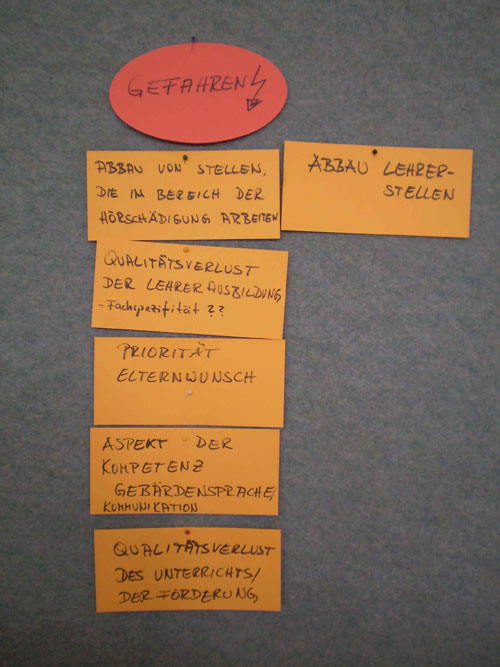 GEFAHREN
ABBAU VON STELLEN,
DIE IM BEREICH DER
HÖRSCHÄDIGUNG ARBEITEN
ABBAU LEHRER-
STELLEN
QUALITÄTSVERLUST
DER LEHRERAUSBILDUNG
- Fachspezifität ??
PRIORITÄT
ELTERNWUNSCH
ASPEKT DER
KOMPETENZ
GEBÄRDENSPRACHE/
KOMMUNIKATION
QUALITÄTSVERLUST
DES UNTERRICHTS/
DER FÖRDERUNG